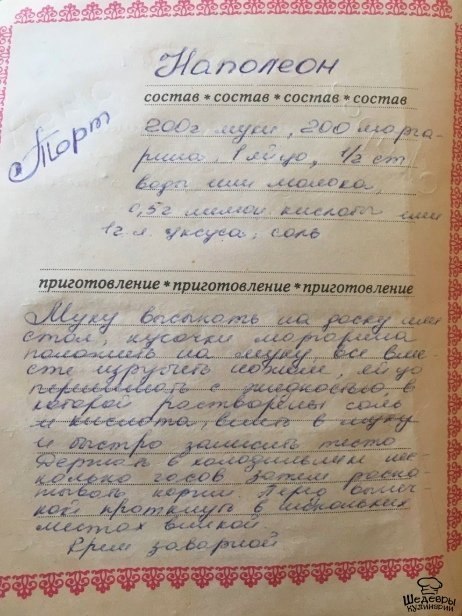 Наполеон
Торт
состав * состав * состав * состав
200г муки, 200 марга-
рина, 1 яйцо, 1/2 ст
воды или молока,
0,5г лимон кислоты или
1г.л. уксуса, соль
приготовление * приготовление * приготовление
Муку высыпать на доску или
стол, кусочки маргарина
положить на муку все вме-
сте изрубить ножом, яйцо
перемешать с жидкостью в
которой растворены соль
и кислота, влить в муку
и быстро замесить тесто
Держать в холодильнике нес-
колько часов затем раска-
тывать коржи Перед выпеч
кой проткнуть в нескольких
местах вилкой.
Крем заварной
Шедевры
кулинарии